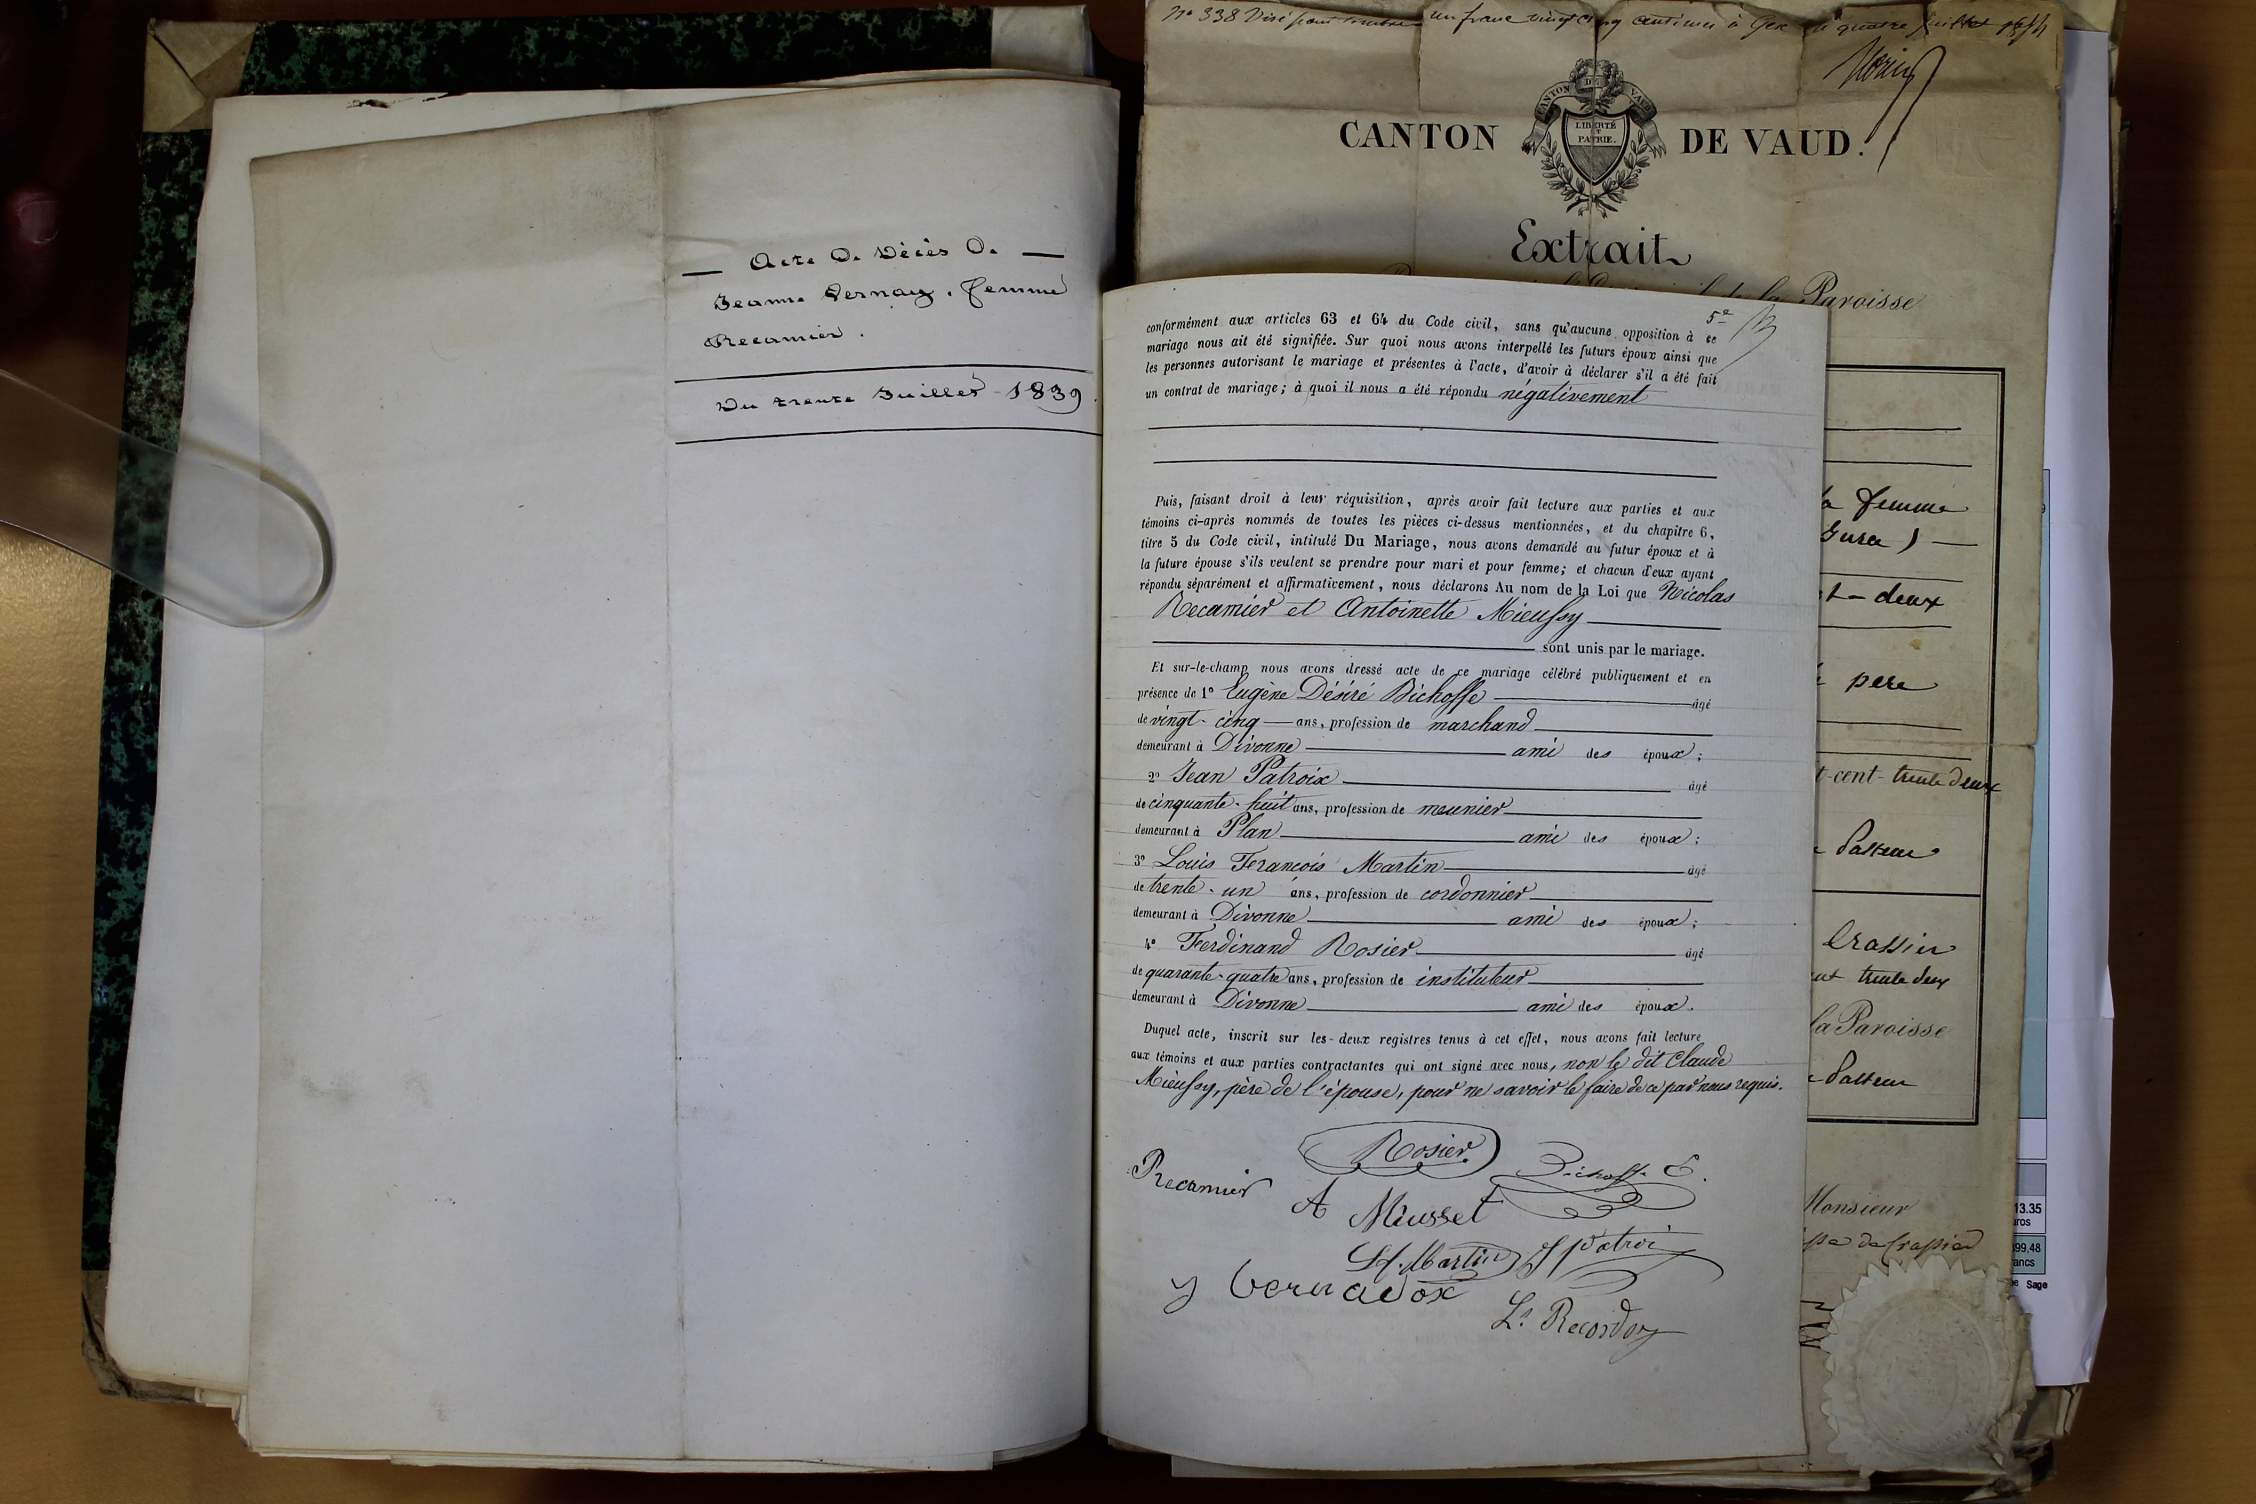 Acte De Décès De
Jeanne Pernay, femme
Recamier.
Du trente Juillet 1839.
N° 338 Visé pour timbre un franc vingt cinq centimes à Gex le quatre juillet
CANTON DE VAUD
LIBERTÉ
ET
PATRIE.
CANTON DE VAUD.
Extrait
de la Paroisse
5e
conformément aux articles 63 et 64 du Code civil, sans qu'aucune opposition à ce
mariage nous ait été signifiée. Sur quoi nous avons interpellé les futurs époux ainsi que
les personnes autorisant le mariage et présentes à l'acte, d'avoir à déclarer s'il a été fait
un contrat de mariage; à quoi il nous a été répondu négativement
Puis, faisant droit à leur réquisition, après avoir fait lecture aux parties et aux
témoins ci-après nommés de toutes les pièces ci-dessus mentionnées, et du chapitre 6,
titre 5 du Code civil, intitulé Du Mariage, nous avons demandé au futur époux et à
la future épouse s'ils veulent se prendre pour mari et pour femme; et chacun d'eux ayant
répondu séparément et affirmativement, nous déclarons Au nom de la Loi que Nicolas
Recamier et Antoinette Mieussy
sont unis par le mariage.
Et sur-le-champ nous avons dressé acte de ce mariage célébré publiquement et en
présence de 1° Eugène Désiré Bichoffe âgé
de vingt-cinq ans, profession de marchand
demeurant à Divonne ami des époux;
2° Jean Patroix âgé
de cinquante-huit ans, profession de meunier
demeurant à Plan ami des époux;
3° Louis François Martin âgé
de trente-un ans, profession de cordonnier
demeurant à Divonne ami des époux;
4° Ferdinand Rosier âgé
de quarante-quatre ans, profession de instituteur
demeurant à Divonne ami des époux.
Duquel acte, inscrit sur les deux registres tenus à cet effet, nous avons fait lecture
aux témoins et aux parties contractantes qui ont signé avec nous, non le dit Claude
Mieussy, père de l'épouse, pour ne savoir le faire de ce par nous requis.
Rosier
Recamier
Bichoffe E.
A Miusset
Lf. Martin
J Patroi
Ls Recordon
la femme
Jura)
deux
père
t-cent-trente deux
Pasteur
Crassier
trente deux
la Paroisse
Pasteur
Monsieur
de Crassier
13.35
99,48
Sage